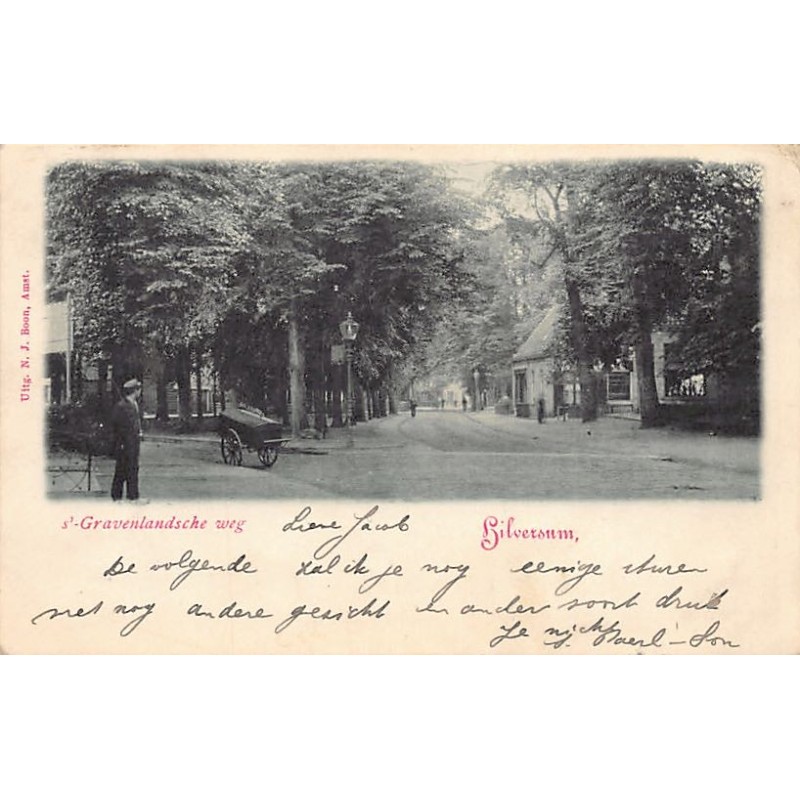 Uitg. N. J. Boon, Amst.
s'-Gravenlandsche weg Lieve Jacob Hilversum,
De volgende zal ik je nog eenige sturen
met nog andere gezicht en ander soort druk
Je